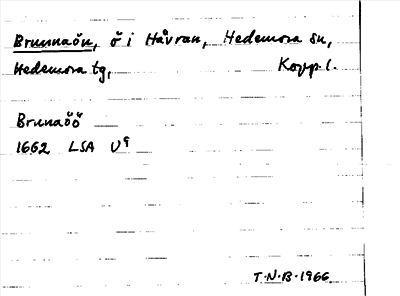 Brunnaön, ö i Håvran, Hedemora sn,
Hedemora tg, Kopp. l.
Brunaöö
1662 LSA U9
T.N.B. 1966